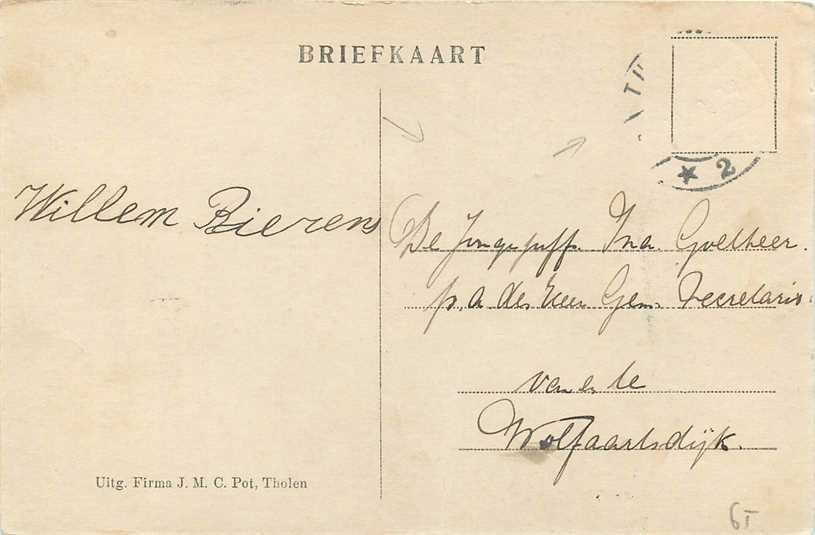 BRIEFKAART
Willem Bierens
De Jongejuffr. Ina Goetheer.
p. a. den Heer Gem. Secretaris
van en te
Wolfaartsdijk.
Uitg. Firma J. M. C. Pot, Tholen
2